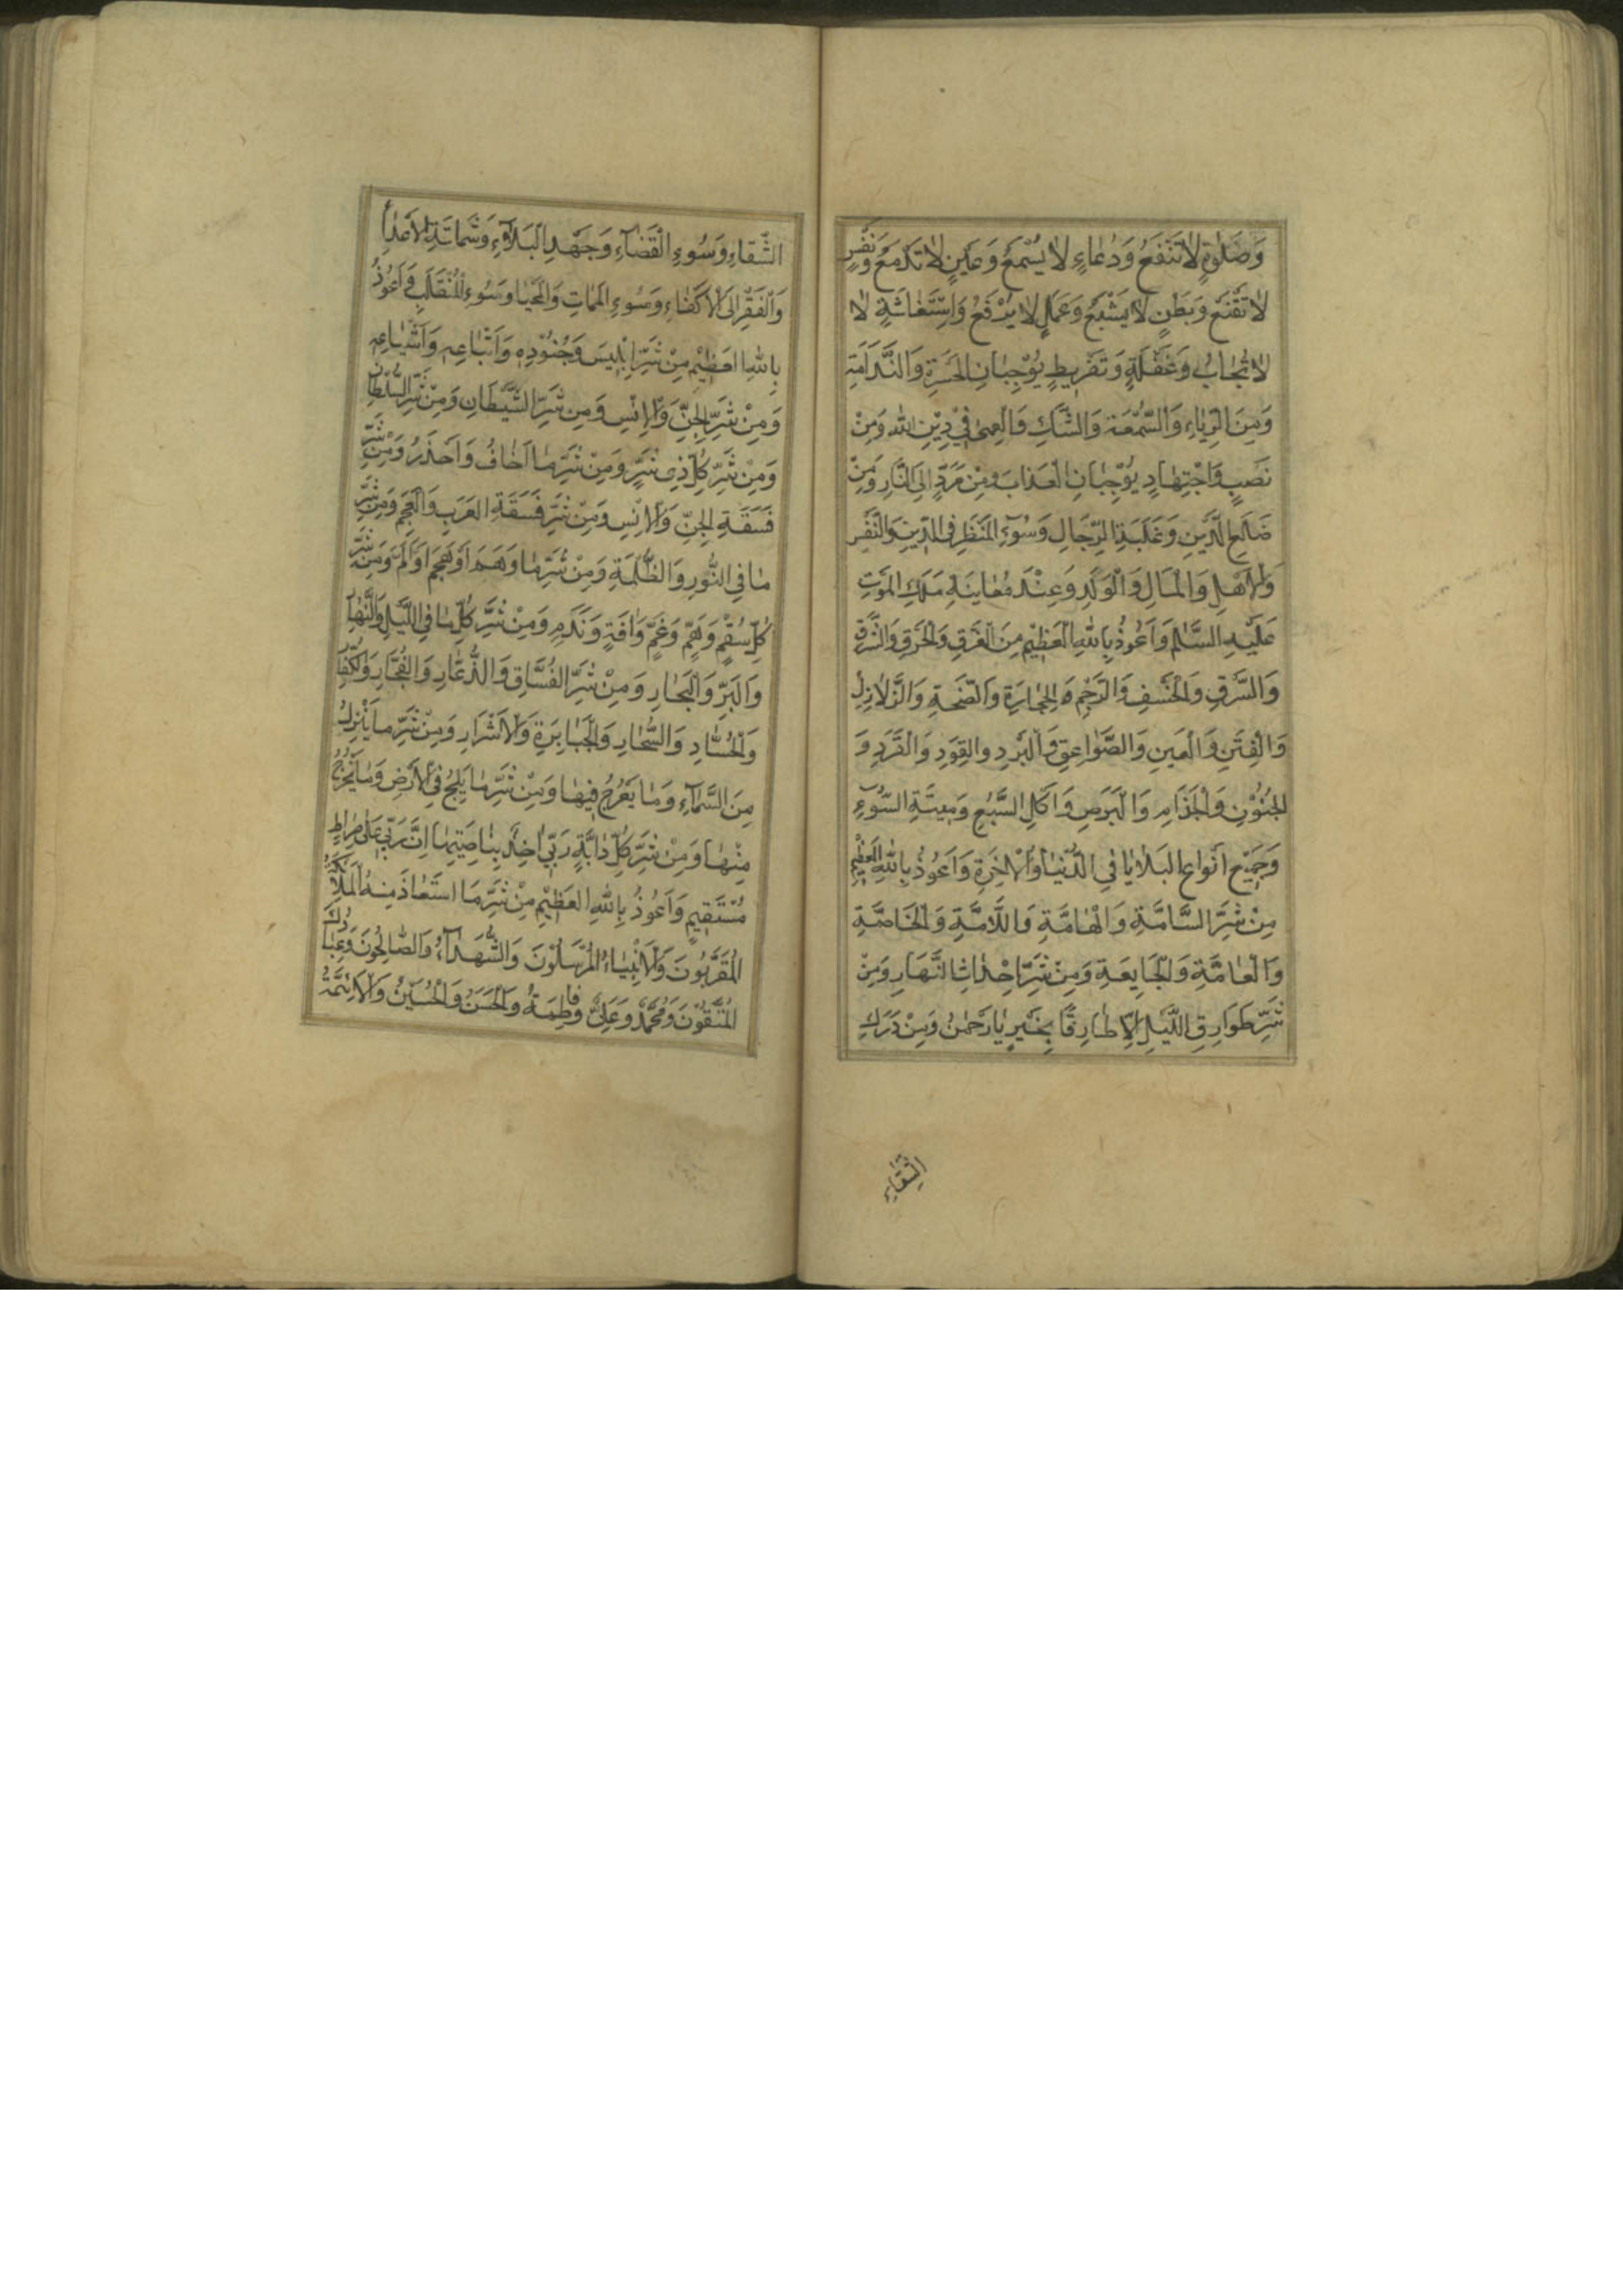 وَصَلٰوةٍ لٰا تَنْفَعُ وَدُعٰاءٍ لٰا يُسْمَعُ وَعَيْنٍ لٰا تَدْمَعُ وَنَفْسٍ
لٰا تَقْنَعُ وَبَطْنٍ لٰا يَشْبَعُ وَعَمَلٍ لٰا يُرْفَعُ وَاسْتِغٰاثَةٍ لٰا
لٰا تُجٰابُ وَغَفْلَةٍ وَتَفْرِيطٍ يُوْجِبٰانِ الحَسْرَةَ وَالنَّدَامَةَ
وَمِنَ الرِّيٰاءِ وَالسُّمْعَةِ وَالشَّكِّ وَالعَمىٰ فِيْ دِيْنِ اللهِ وَمِنْ
نَصَبٍ وَاجْتِهٰادٍ يُوْجِبٰانِ الْعَذٰابَ وَمِنْ مَرَدٍّ اِلَى النَّارِ وَمِنْ
ضَلَعِ الدَّيْنِ وَغَلَبَةِ الرِّجَالِ وَسُوْءِ المَنْظَرِ فِى الدِّينِ وَالنَّفْسِ
وَالْاَهْلِ وَالْمَالِ وَالْوَلَدِ وَعِنْدَ مُعٰايَنَةِ مَلَكِ المَوْتِ
عَلَيْهِ السَّلٰم وَاَعُوذُ بِاللهِ الْعَظِيْمِ مِنَ الْغَرَقِ وَالْحَرَقِ وَالشَّرَقِ
وَالسَّرَقِ وَالْخَسْفِ وَالرَّجْمِ وَالحِجٰارَةِ وَالصَّيْحَةِ وَالزَّلٰازِلِ
وَالْفِتَنِ وَالْعَيْنِ وَالصَّوٰاعِقِ وَالْبَرَدِ وَالقَوَدِ وَالْقَرَدِ وَ
الجُنُوْنِ وَالْجُذَامِ وَالْبَرَصِ وَاَكْلِ السَّبُعِ وَمِيتَةِ السُّوْءِ
وَجَمِيْعِ اَنْوٰاعِ البَلٰايٰا فِي الدُّنْيٰا وَالْاٰخِرَةِ وَاَعُوذُ بِاللهِ العَظِيْمِ
مِنْ شَرِّ السَّامَّةِ وَالْهٰامَّةِ وَاللَّامَّةِ وَالْخَاصَّةِ
وَالْعٰامَّةِ وَالْحَامِعَةِ وَمِنْ شَرِّ اَحْدٰاثِ النَّهَارِ وَمِنْ
شَرِّ طَوَارِقِ اللَّيْلِ اِلَّا طٰارِقًا بِخَيْرٍ يٰا رَحْمٰنُ وَمِنْ دَرَكِ
الشَّقٰاءِ
الشَّقاءِ وَسُوءِ الْقَضٰاءِ وَجَهْدِ الْبَلٰاءِ وَشَمٰاتَةِ الْاَعْدٰاءِ
وَالْفَقْرِ اِلَى الْاَكْفٰاءِ وَسُوءِ المَمٰاتِ وَالْمَحْيٰا وَسُوءِ الْمُنْقَلَبِ وَاَعُوْذُ
بِاللهِ العَظِيْمِ مِنْ شَرِّ اِبْلِيسَ وَجُنُوْدِهِ وَاَتْبٰاعِهِ وَاَشْيٰاعِهِ
وَمِنْ شَرِّ الجِنِّ وَالْاِنْسِ وَمِنْ شَرِّ الشَّيْطَانِ وَمِنْ شَرِّ السُّلْطٰانِ
وَمِنْ شَرِّ كُلِّ ذِى شَرٍّ وَمِنْ شَرِّ مٰا اَخٰافُ وَاَحْذَرُ وَمِنْ شَرِّ
فَسَقَةِ الجِنِّ وَالْاِنْسِ وَمِنْ شَرِّ فَسَقَةِ العَرَبِ وَالْعَجَمِ وَمِنْ شَرِّ
مٰا فِي النُّورِ وَالظُّلْمَةِ وَمِنْ شَرِّ مٰا وَهَمَ اَوْ هَجَمَ اَوْ اَلَمَّ وَمِنْ شَرِّ
كُلِّ سُقْمٍ وَهَمٍّ وَغَمٍّ وَاٰفَةٍ وَنَدَمٍ وَمِنْ شَرِّ كُلِّ مٰا فِي اللَّيْلِ وَالنَّهٰارِ
وَالْبَرِّ وَالْبِحٰارِ وَمِنْ شَرِّ الفُسَّاقِ وَالدُّعّٰارِ وَالْفُجّٰارِ وَالْكُفّٰارِ
وَالْحُسّٰادِ وَالسُّحّٰارِ وَالْجَبٰابِرَةِ وَالْاَشْرَارِ وَمِنْ شَرِّ مٰا يَنْزِلُ
مِنَ السَّمٰاءِ وَمٰا يَعْرُجُ فِيهٰا وَمِنْ شَرِّ مٰا يَلِجُ فِي الْاَرْضِ وَمٰا يَخْرُجُ
مِنْهٰا وَمِنْ شَرِّ كُلِّ دٰابَّةٍ رَبِّي اٰخِذٌ بِنٰاصِيَتِهٰا اِنَّ رَبِّي عَلىٰ صِرٰاطٍ
مُسْتَقِيمٍ وَاَعُوذُ بِاللهِ العَظِيْمِ مِنْ شَرِّ مَا اسْتَعٰاذَ مِنْهُ الْمَلٰائِكَةُ
الْمُقَرَّبُونَ وَالْاَنْبِيٰاءُ الْمُرْسَلُوْنَ وَالشُّهَدٰاءُ وَالصَّالِحُونَ وَعِبٰادُكَ
الْمُتَّقُوْنَ وَمُحَمَّدٌ وَعَلِيٌّ وَفٰاطِمَةُ وَالْحَسَنُ وَالْحُسَيْنُ وَالْاَئِمَّةُ